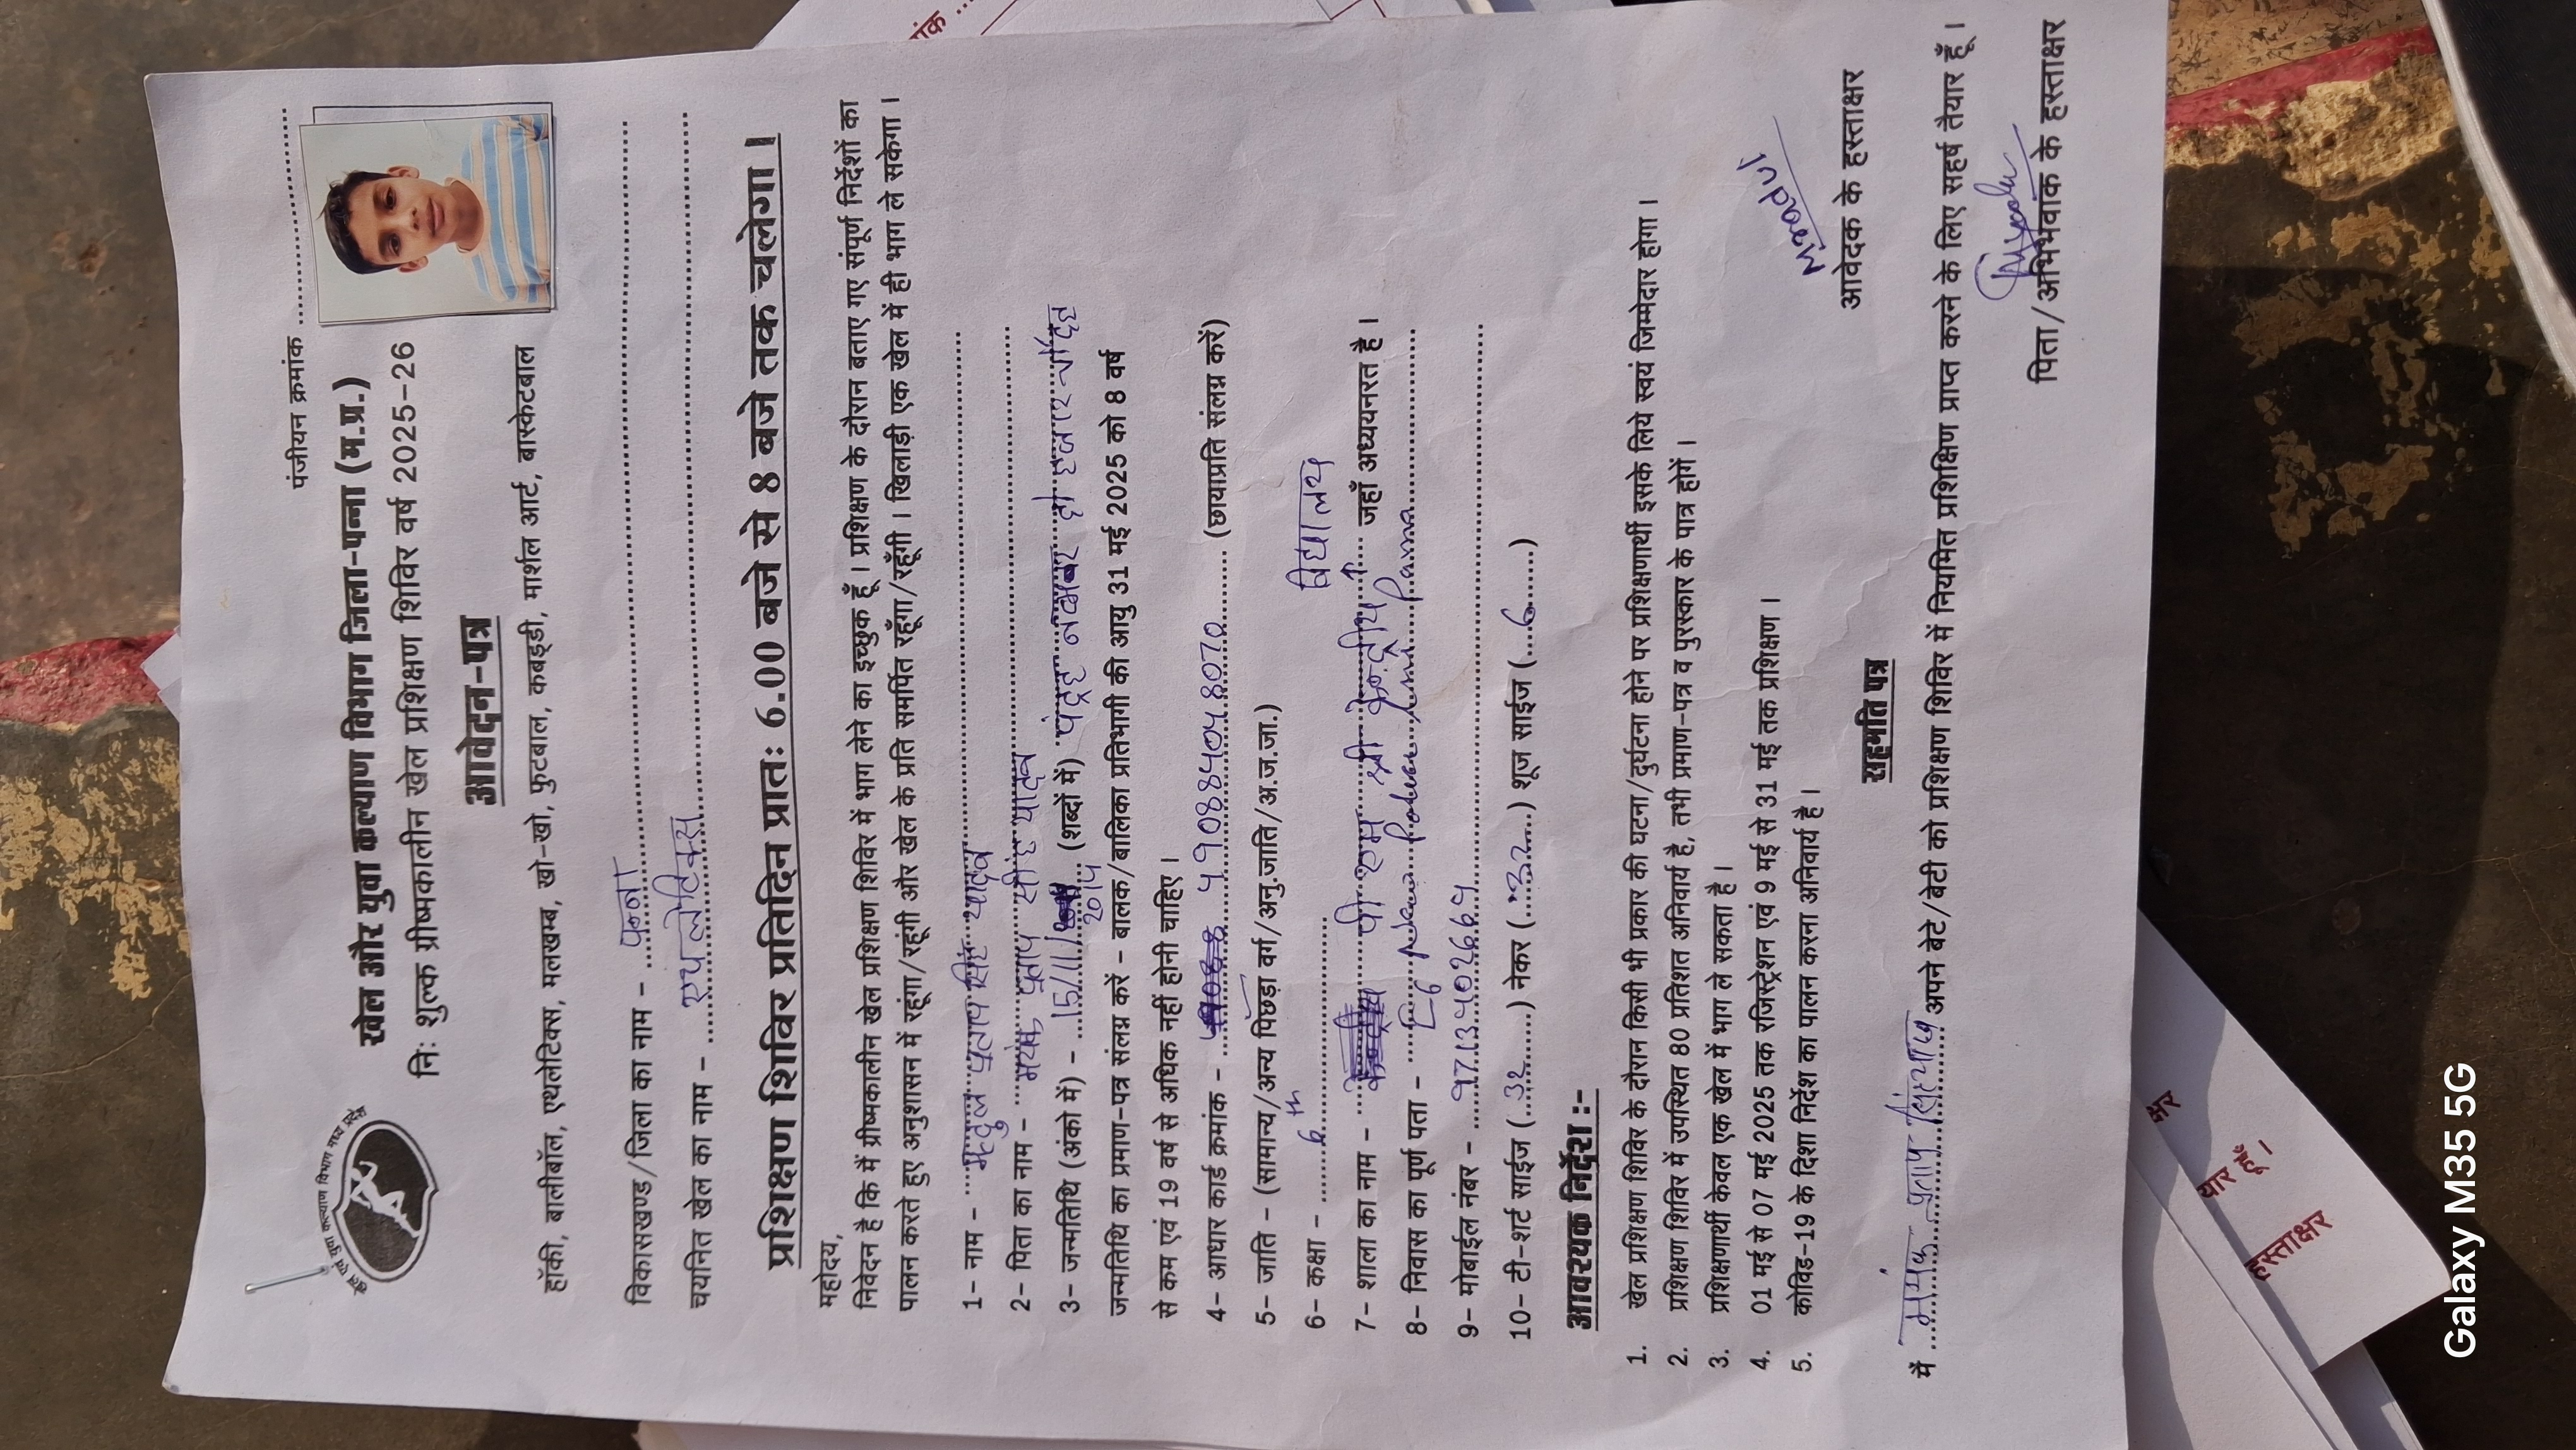 पंजीयन क्रमांक ........................
खेल एवं युवा कल्याण विभाग मध्य प्रदेश
खेल और युवा कल्याण विभाग जिला-पन्ना (म.प्र.)
निः शुल्क ग्रीष्मकालीन खेल प्रशिक्षण शिविर वर्ष 2025-26
आवेदन-पत्र
हॉकी, बालीबॉल, एथलेटिक्स, मलखम्ब, खो-खो, फुटबाल, कबड्डी, मार्शल आर्ट, बास्केटबाल
विकासखण्ड/जिला का नाम - पन्ना
चयनित खेल का नाम - एथलेटिक्स
प्रशिक्षण शिविर प्रतिदिन प्रातः 6.00 बजे से 8 बजे तक चलेगा।
महोदय,
निवेदन है कि मैं ग्रीष्मकालीन खेल प्रशिक्षण शिविर में भाग लेने का इच्छुक हूँ। प्रशिक्षण के दौरान बताए गए संपूर्ण निर्देशों का
पालन करते हुए अनुशासन में रहूंगा/रहूंगी और खेल के प्रति समर्पित रहूँगा/रहूँगी। खिलाड़ी एक खेल में ही भाग ले सकेगा।
1- नाम - मृदुल प्रताप सिंह यादव
2- पिता का नाम - मयंक प्रताप सींह यादव
3- जन्मतिथि (अंको में) - 15/11/2014 (शब्दों में) पंद्रह नवम्बर दो हजार चौदह
जन्मतिथि का प्रमाण-पत्र संलग्न करें - बालक/बालिका प्रतिभागी की आयु 31 मई 2025 को 8 वर्ष
से कम एवं 19 वर्ष से अधिक नहीं होनी चाहिए।
4- आधार कार्ड क्रमांक - (छायाप्रति संलग्न करें)
5- जाति - (सामान्य/अन्य पिछड़ा वर्ग/अनु.जाति/अ.ज.जा.)
6- कक्षा - 6th
विद्यालय
7- शाला का नाम - पी एम श्री केन्द्रीय जहाँ अध्ययनरत है।
8- निवास का पूर्ण पता - E-6 New Police Line Panna
9- मोबाईल नंबर - 9713402664
10- टी-शर्ट साईज (32) नेकर (32) शूज साईज (6)
आवश्यक निर्देश :-
1. खेल प्रशिक्षण शिविर के दौरान किसी भी प्रकार की घटना/दुर्घटना होने पर प्रशिक्षणार्थी इसके लिये स्वयं जिम्मेदार होगा।
2. प्रशिक्षण शिविर में उपस्थित 80 प्रतिशत अनिवार्य है, तभी प्रमाण-पत्र व पुरस्कार के पात्र होगें।
3. प्रशिक्षणार्थी केवल एक खेल में भाग ले सकता है।
4. 01 मई से 07 मई 2025 तक रजिस्ट्रेशन एवं 9 मई से 31 मई तक प्रशिक्षण।
5. कोविड-19 के दिशा निर्देश का पालन करना अनिवार्य है।
Mraadul
आवेदक के हस्ताक्षर
सहमति पत्र
मैं मयंक प्रताप सिंह यादव अपने बेटे/बेटी को प्रशिक्षण शिविर में नियमित प्रशिक्षण प्राप्त करने के लिए सहर्ष तैयार हूँ।
पिता/अभिभवाक के हस्ताक्षर
क्षर
यार हूँ।
हस्ताक्षर
Galaxy M35 5G